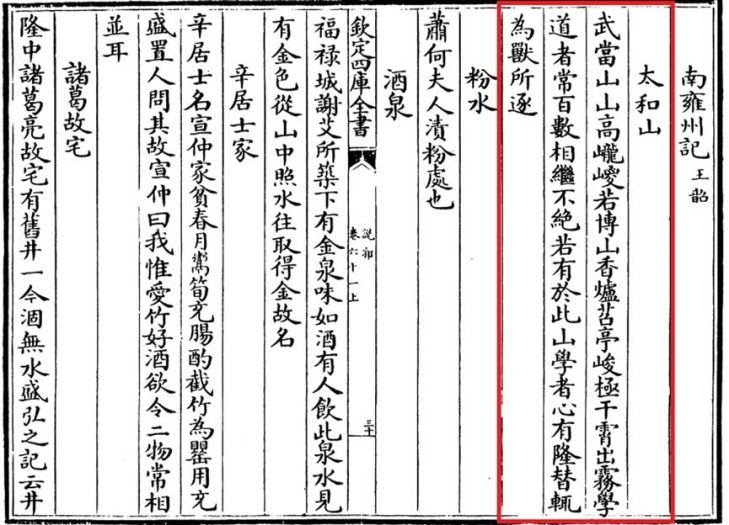 南雍州記王韶
太和山
武當山山高巄嵕若博山香爐苕亭峻極干霄出霧學
道者常百數相繼不絶若有於此山學者心有隆替輒
為獸所逐
粉水
蕭何夫人漬粉處也
酒泉
欽定四庫全書
説郛
卷六十一上
三十
福禄城謝艾所築下有金泉味如酒有人飲此泉水見
有金色從山中照水往取得金故名
辛居士家
辛居士名宣仲家貧春月鬻筍充腸酌截竹為罌用充
盛置人問其故宣仲曰我惟愛竹好酒欲令二物常相
並耳
諸葛故宅
隆中諸葛亮故宅有舊井一今涸無水盛弘之記云井